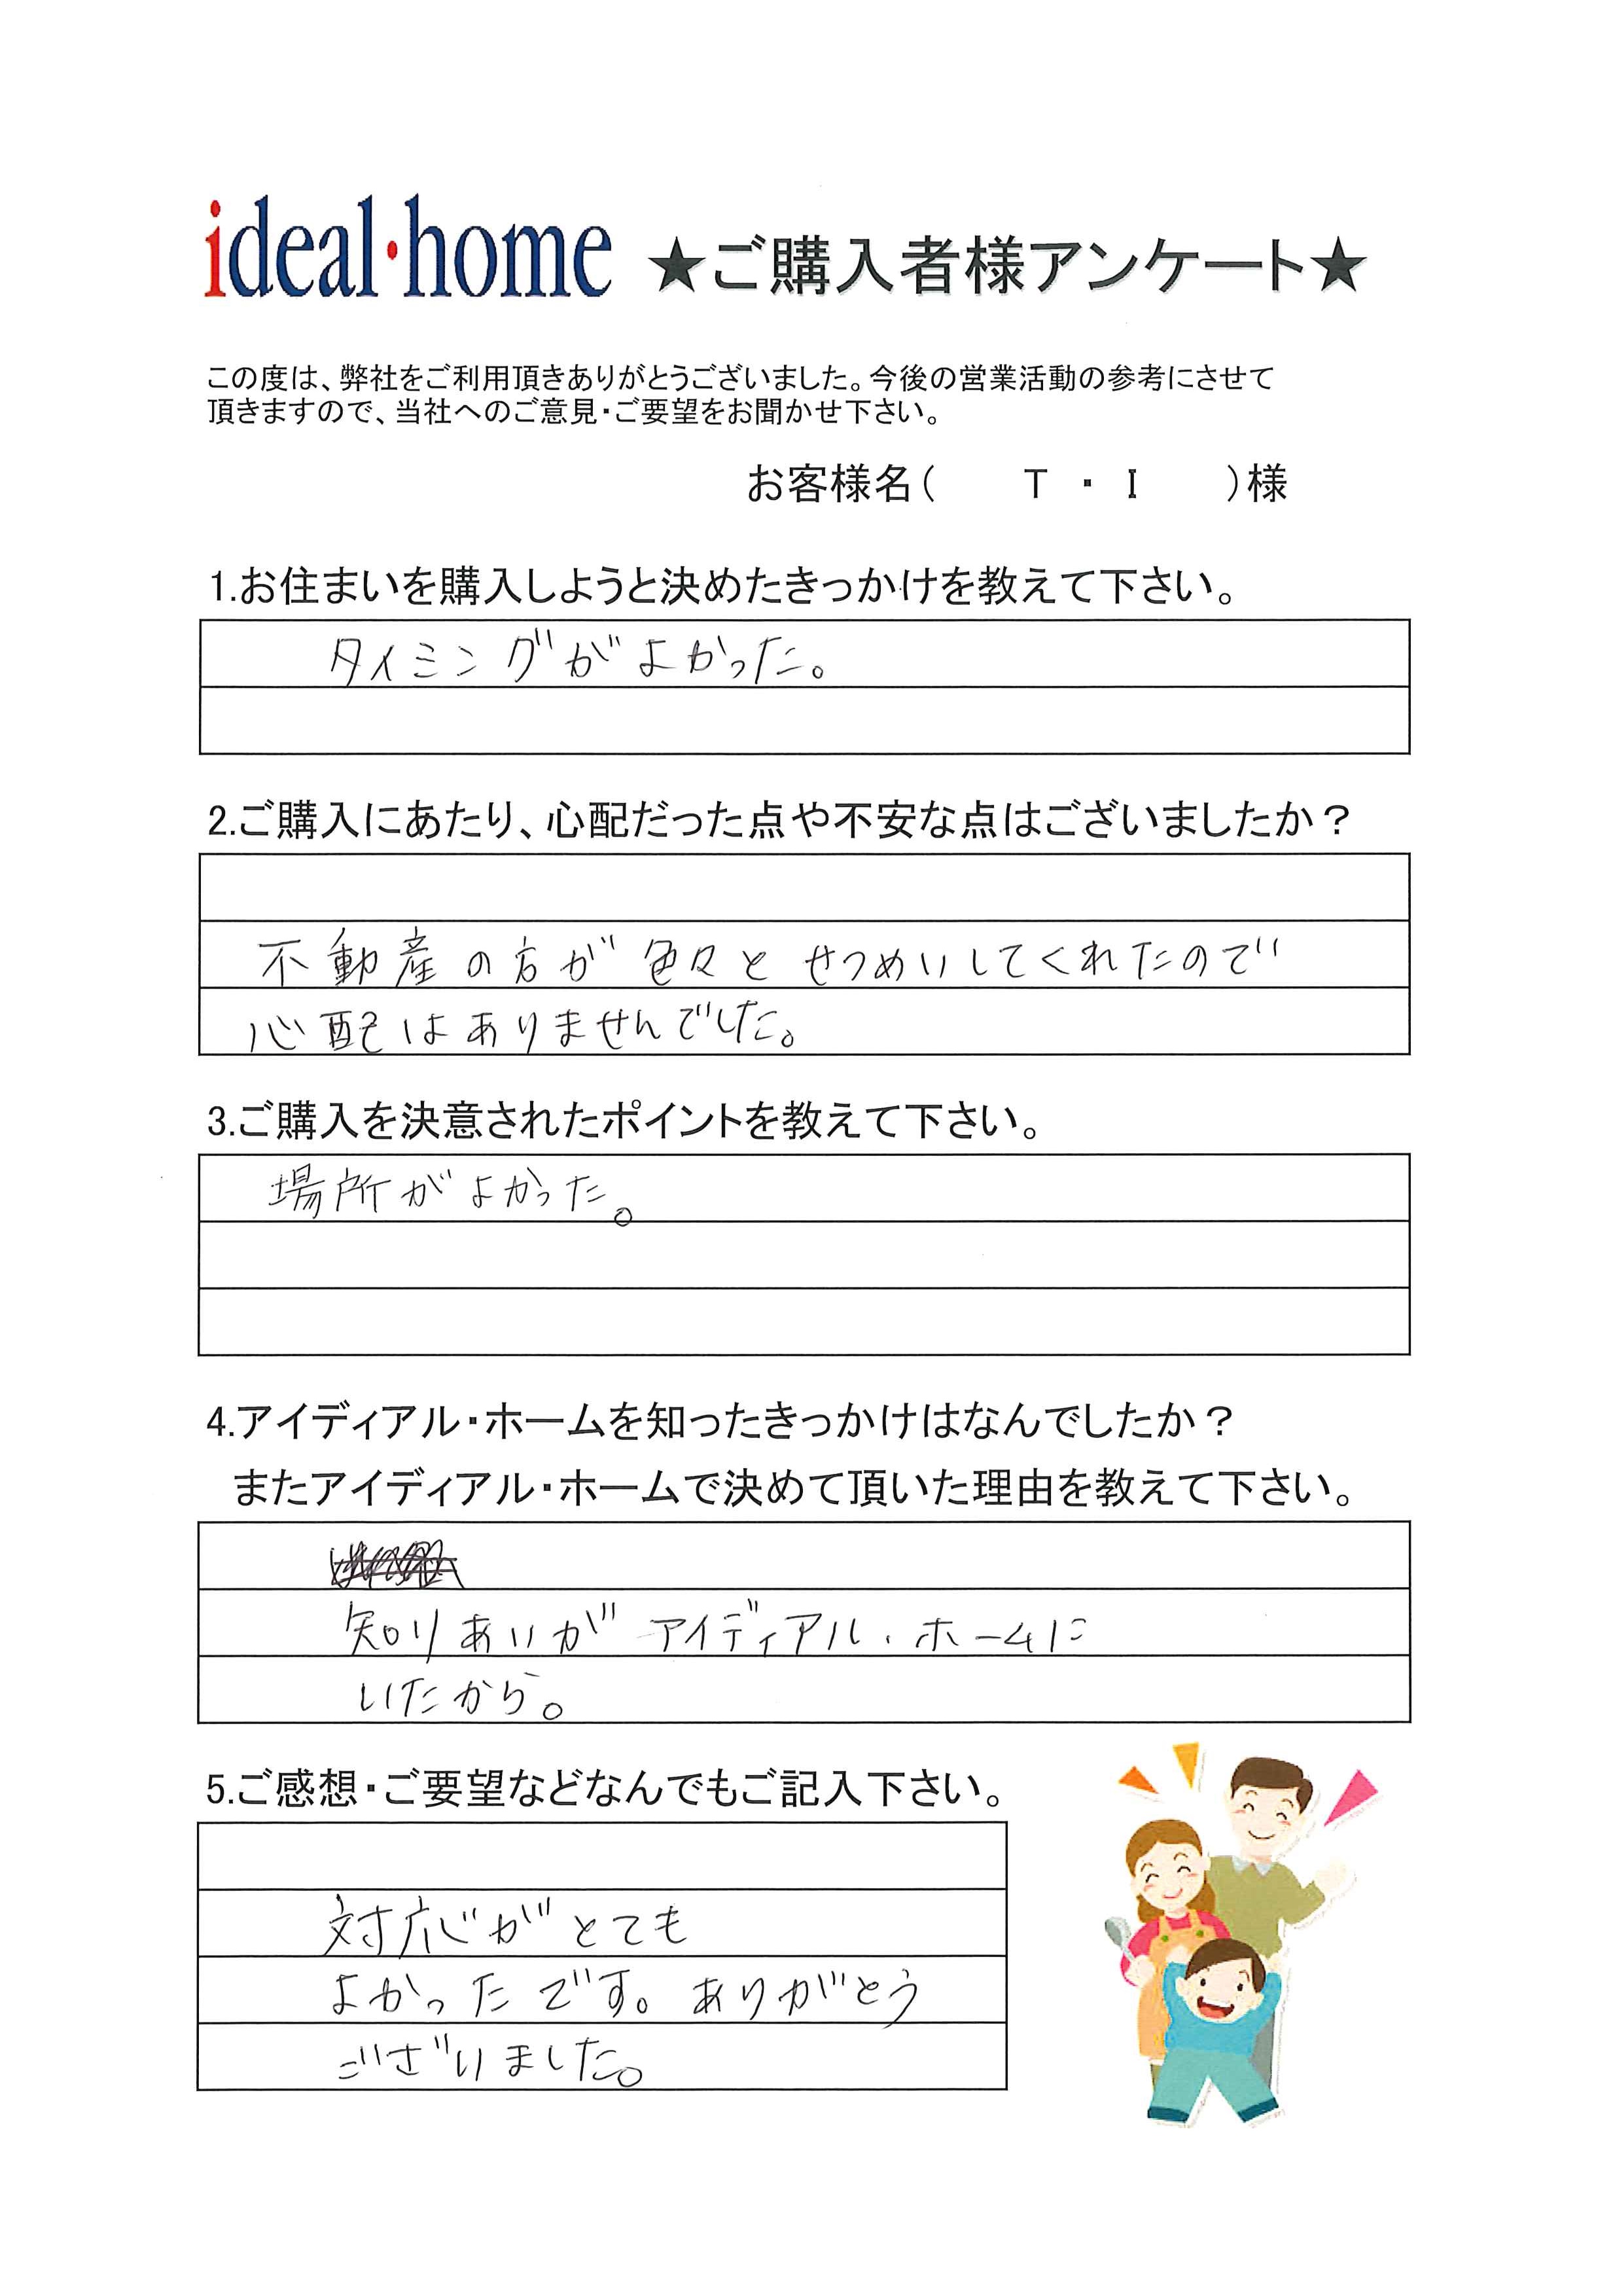 ideal・home ★ご購入者様アンケート★
この度は、弊社をご利用頂きありがとうございました。今後の営業活動の参考にさせて
頂きますので、当社へのご意見・ご要望をお聞かせ下さい。
お客様名( T ・ I )様
1.お住まいを購入しようと決めたきっかけを教えて下さい。
タイミングがよかった。
2.ご購入にあたり、心配だった点や不安な点はございましたか？
不動産の方が色々とせつめいしてくれたので
心配はありませんでした。
3.ご購入を決意されたポイントを教えて下さい。
場所がよかった。
4.アイディアル・ホームを知ったきっかけはなんでしたか？
またアイディアル・ホームで決めて頂いた理由を教えて下さい。
知りあいがアイディアル・ホームに
いたから。
5.ご感想・ご要望などなんでもご記入下さい。
対応がとても
よかったです。ありがとう
ございました。